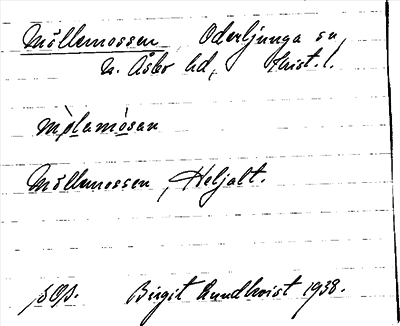 Möllemossen, Oderljunga sn,
N. Åsbo hd, Krist. l.
mòlamòsan
Möllemossen, Heljalt.
sOp. Birgit Lundkvist 1938.